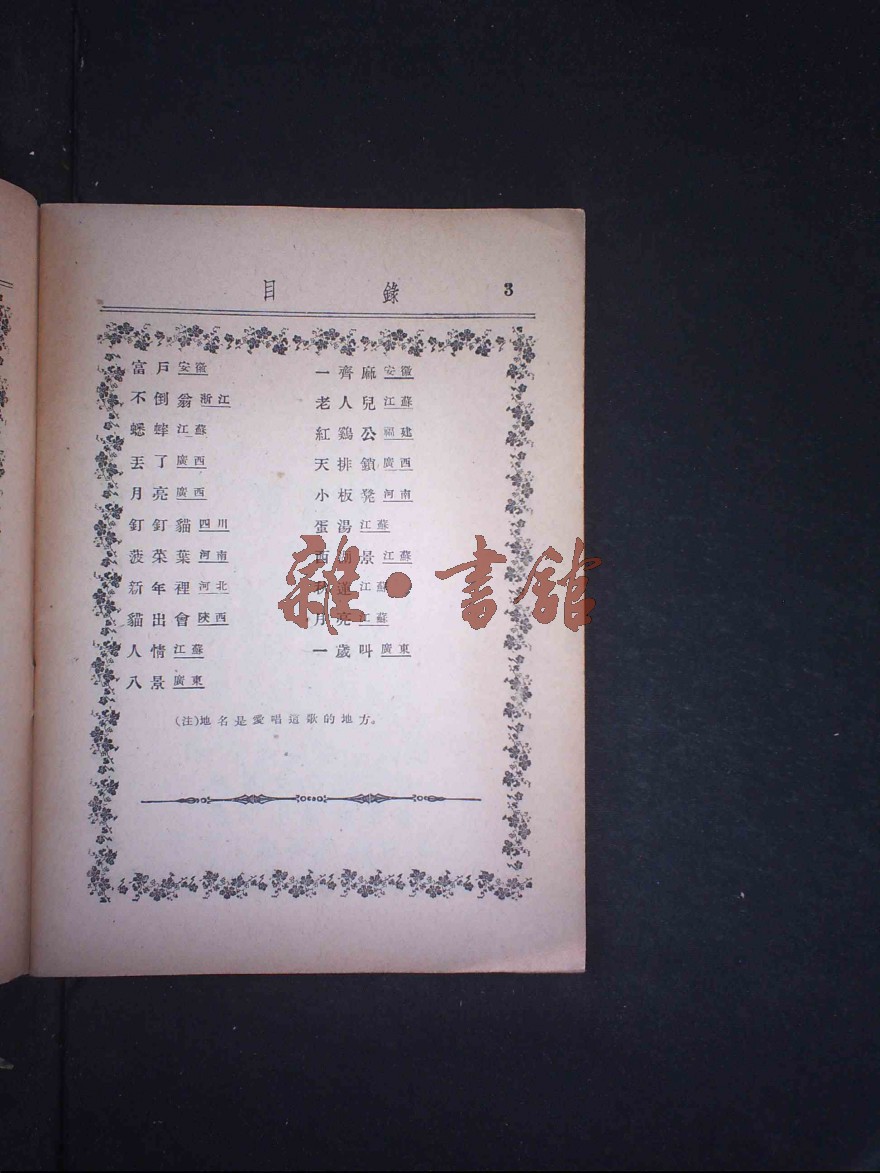 目錄 3
富戶 安徽
不倒翁 浙江
蟋蟀 江蘇
丟了 廣西
月亮 廣西
釘釘貓 四川
菠菜葉 河南
新年裡 河北
貓出會 陝西
人情 江蘇
八景 廣東
一齊麻 安徽
老人兒 江蘇
紅鷄公 福建
天排鎖 廣西
小板凳 河南
蛋湯 江蘇
西湖景 江蘇
蓮 江蘇
月亮 江蘇
一歲叫 廣東
(注)地名是愛唱這歌的地方。
雜·書館